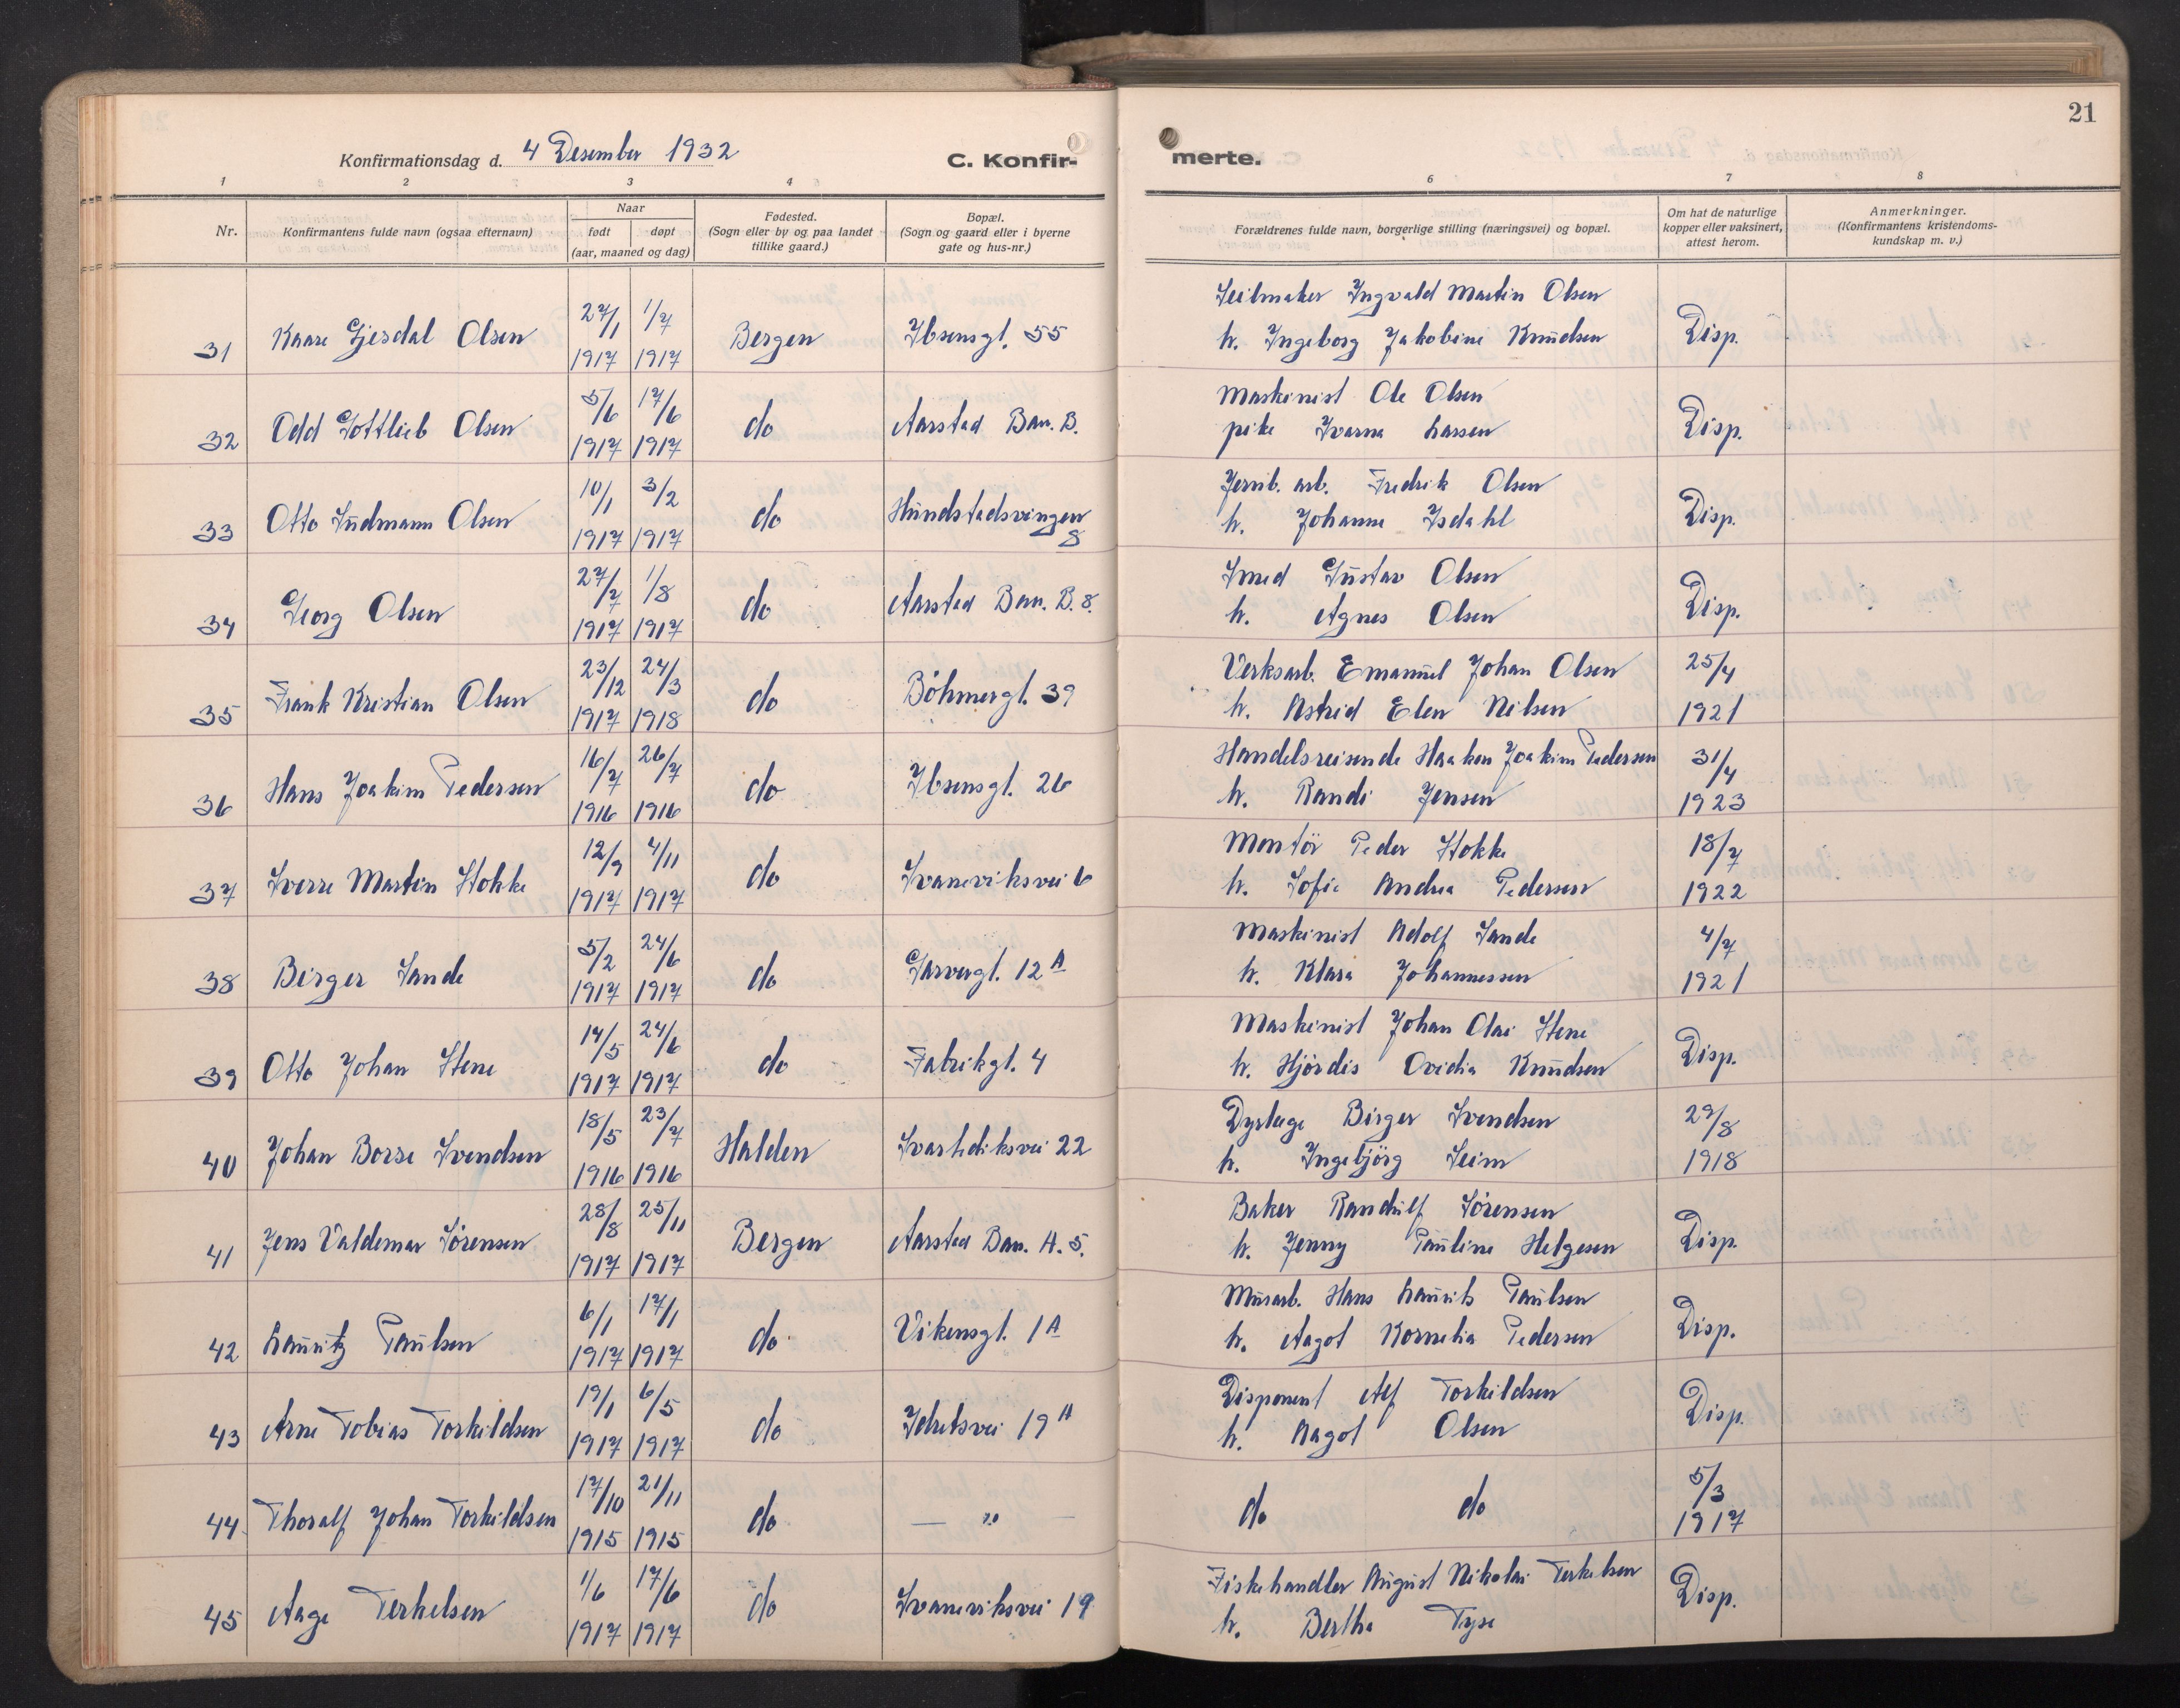 21
Konfirmationsdag d. 4 Desember 1932
C. Konfir-
merte.
1 2 3 4 6 7 8
Nr.
Konfirmantens fulde navn (ogsaa efternavn)
Naar
født døpt
(aar, maaned og dag)
Fødested.
(Sogn eller by og paa landet
tillike gaard.)
Bopæl.
(Sogn og gaard eller i byerne
gate og hus-nr.)
Forældrenes fulde navn, borgerlige stilling (næringsvei) og bopæl.
Om hat de naturlige
kopper eller vaksinert,
attest herom.
Anmerkninger.
(Konfirmantens kristendoms-
kundskap m. v.)
27/1 1/7 Seilmaker Ingvald Martin Olsen
31 Kaare Gjesdal Olsen 1917 1917 Bergen Ibsensgt. 55 h. Ingeborg Jakobine Knudsen Disp.
5/6 17/6 Maskinist Ole Olsen
32 Odd Gottlieb Olsen 1917 1917 do Aarstad Bar. B. pike Ivarna Larsen Disp.
10/1 3/2 Jernb. arb. Fredrik Olsen
33 Otto Sudmann Olsen 1917 1917 do Hundstadsvingen 8 h. Johanna Isdahl Disp.
27/7 1/8 Smed Gustav Olsen
34 Georg Olsen 1917 1917 do Aarstad Bar. B. 8. h. Agnes Olsen Disp.
23/12 24/3 Verksarb. Emanuel Johan Olsen 25/4
35 Frank Kristian Olsen 1917 1918 do Böhmergt. 39 h. Astrid Elen Nilsen 1921
16/7 26/7 Handelsreisende Haakon Joakim Pedersen 31/4
36 Hans Joakim Pedersen 1916 1916 do Ibsensgt. 26 h. Randi Jensen 1923
12/9 4/11 Montör Peder Stokke 18/7
37 Sverre Martin Stokke 1917 1917 do Svaneviksvei 6 h. Sofie Andrea Pedersen 1922
5/2 24/6 Maskinist Adolf Sande 4/7
38 Birger Sande 1917 1917 do Garvergt. 12 A h. Klara Johannessen 1921
14/5 24/6 Maskinist Johan Olai Stene
39 Otto Johan Stene 1917 1917 do Fabrikgt. 4 h. Hjördis Ovidia Knudsen Disp.
18/5 23/7 Dyrlege Birger Svendsen 29/8
40 Johan Borse Svendsen 1916 1916 Halden Svartediksvei 22 h. Ingebjörg Seim 1918
28/8 25/11 Baker Randulf Sörensen
41 Jens Valdemar Sörensen 1917 1917 Bergen Aarstad Bar. A. 5. h. Jenny Pauline Helgesen Disp.
6/1 17/1 Murarb. Hans Laurits Paulsen
42 Lauritz Paulsen 1917 1917 do Vikensgt. 1 A h. Aagot Kornelia Pedersen Disp.
19/1 6/5 Disponent Alf Torkildsen
43 Arne Tobias Torkildsen 1917 1917 do Idretsvei 19 A h. Aagot Olsen Disp.
17/10 21/11 5/3
44 Thoralf Johan Torkildsen 1915 1915 do — „ — do do 1917
1/6 17/6 Fiskehandler August Nikolai Terkelsen
45 Aage Terkelsen 1917 1917 do Svaneviksvei 19 h. Bertha Tyse Disp.